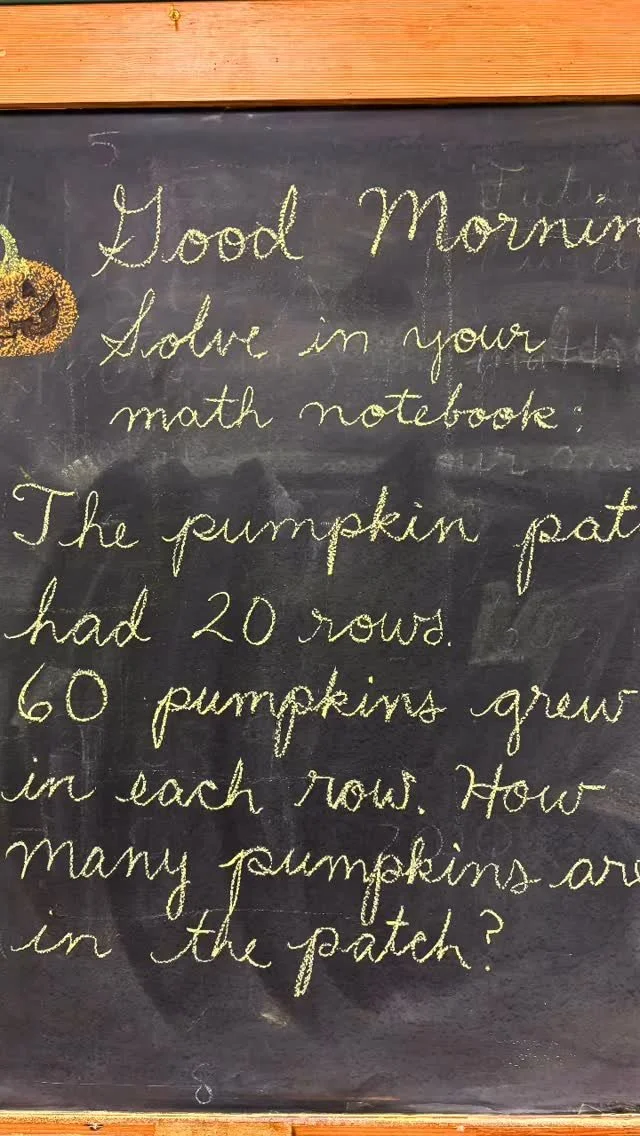 Good Mornin
Solve in your
math notebook:
The pumpkin pat
had 20 rows.
60 pumpkins grew
in each row. How
many pumpkins are
in the patch?